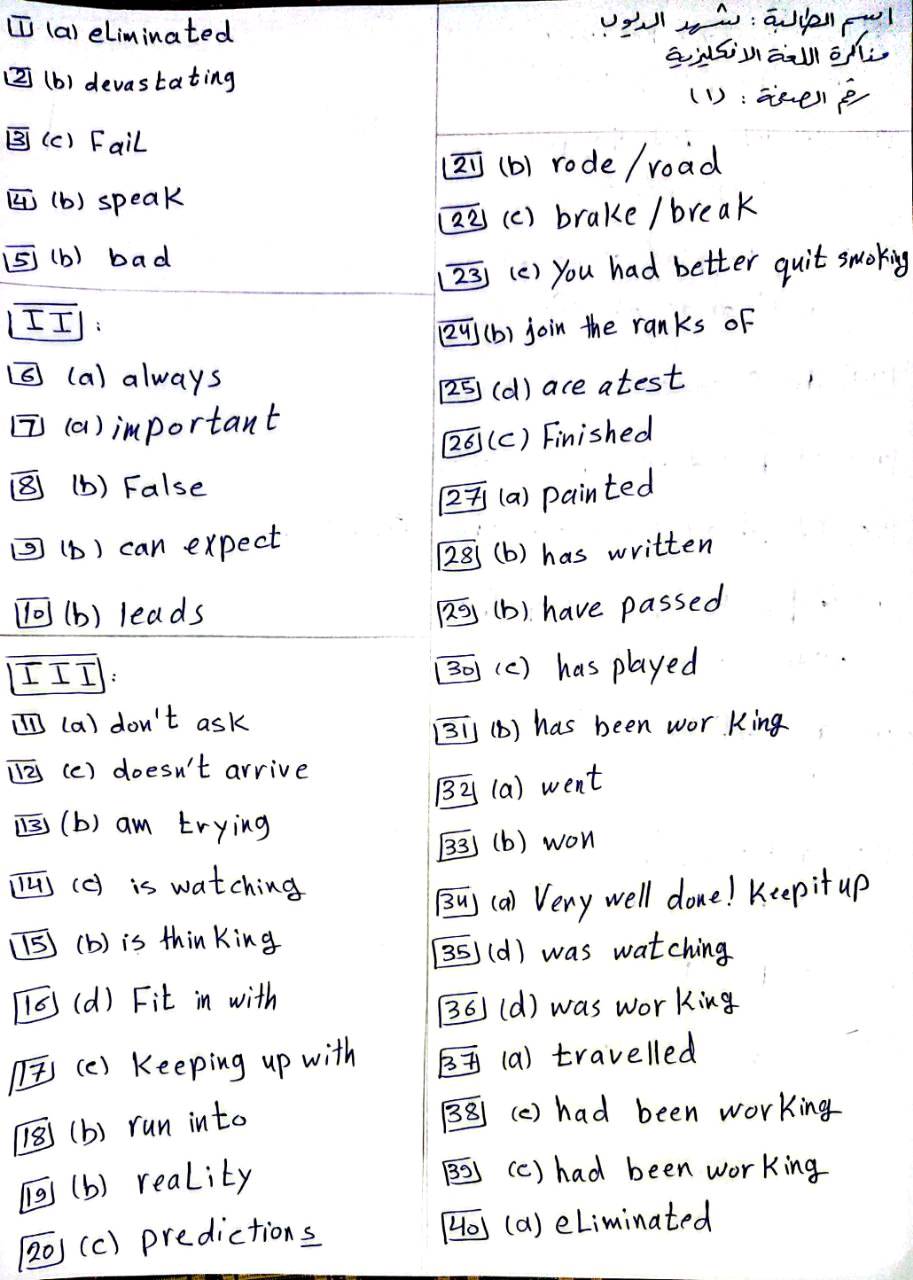 1 (a) eliminated
2 (b) devastating
3 (c) Fail
4 (b) speak
5 (b) bad
II :
6 (a) always
7 (a) important
8 (b) False
9 (b) can expect
10 (b) leads
III :
11 (a) don't ask
12 (c) doesn't arrive
13 (b) am trying
14 (c) is watching
15 (b) is thinking
16 (d) Fit in with
17 (c) Keeping up with
18 (b) run into
19 (b) reality
20 (c) predictions
اسم الطالبة : شهد الديوب
مذاكرة اللغة الانكليزية
رقم الصفحة : (١)
21 (b) rode / road
22 (c) brake / break
23 (c) You had better quit smoking
24 (b) join the ranks of
25 (d) ace atest
26 (c) Finished
27 (a) painted
28 (b) has written
29 (b) have passed
30 (c) has played
31 (b) has been working
32 (a) went
33 (b) won
34 (a) Very well done! Keep it up
35 (d) was watching
36 (d) was working
37 (a) travelled
38 (c) had been working
39 (c) had been working
40 (a) eliminated